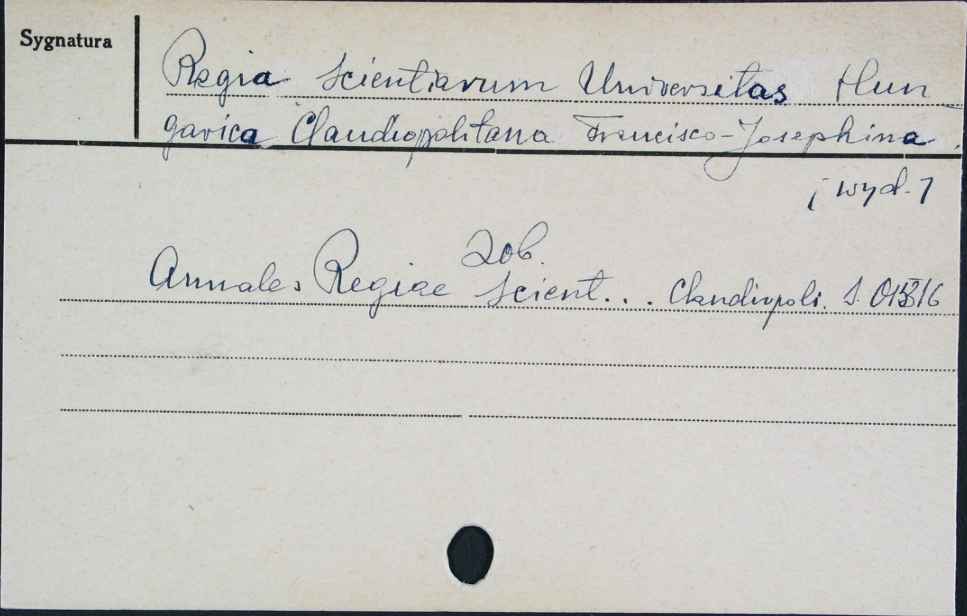 Sygnatura
Regia Scientiarum Universitas Hun-
garica Claudiopolitana Francisco-Josephina.
[wyd.]
Zob.
Annales Regiae Scient... Claudiopoli. S.